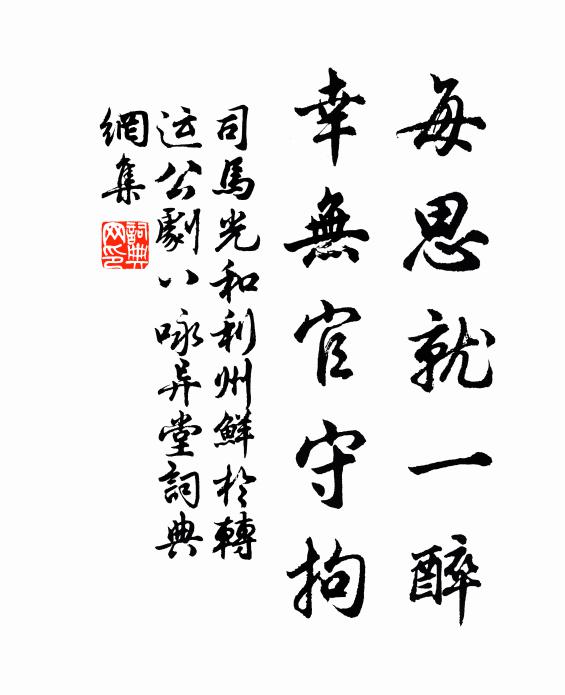 每思就一醉
幸無官守拘
司馬光和利州鮮於轉
运公劇八咏异堂詞典
網集
詞典网印